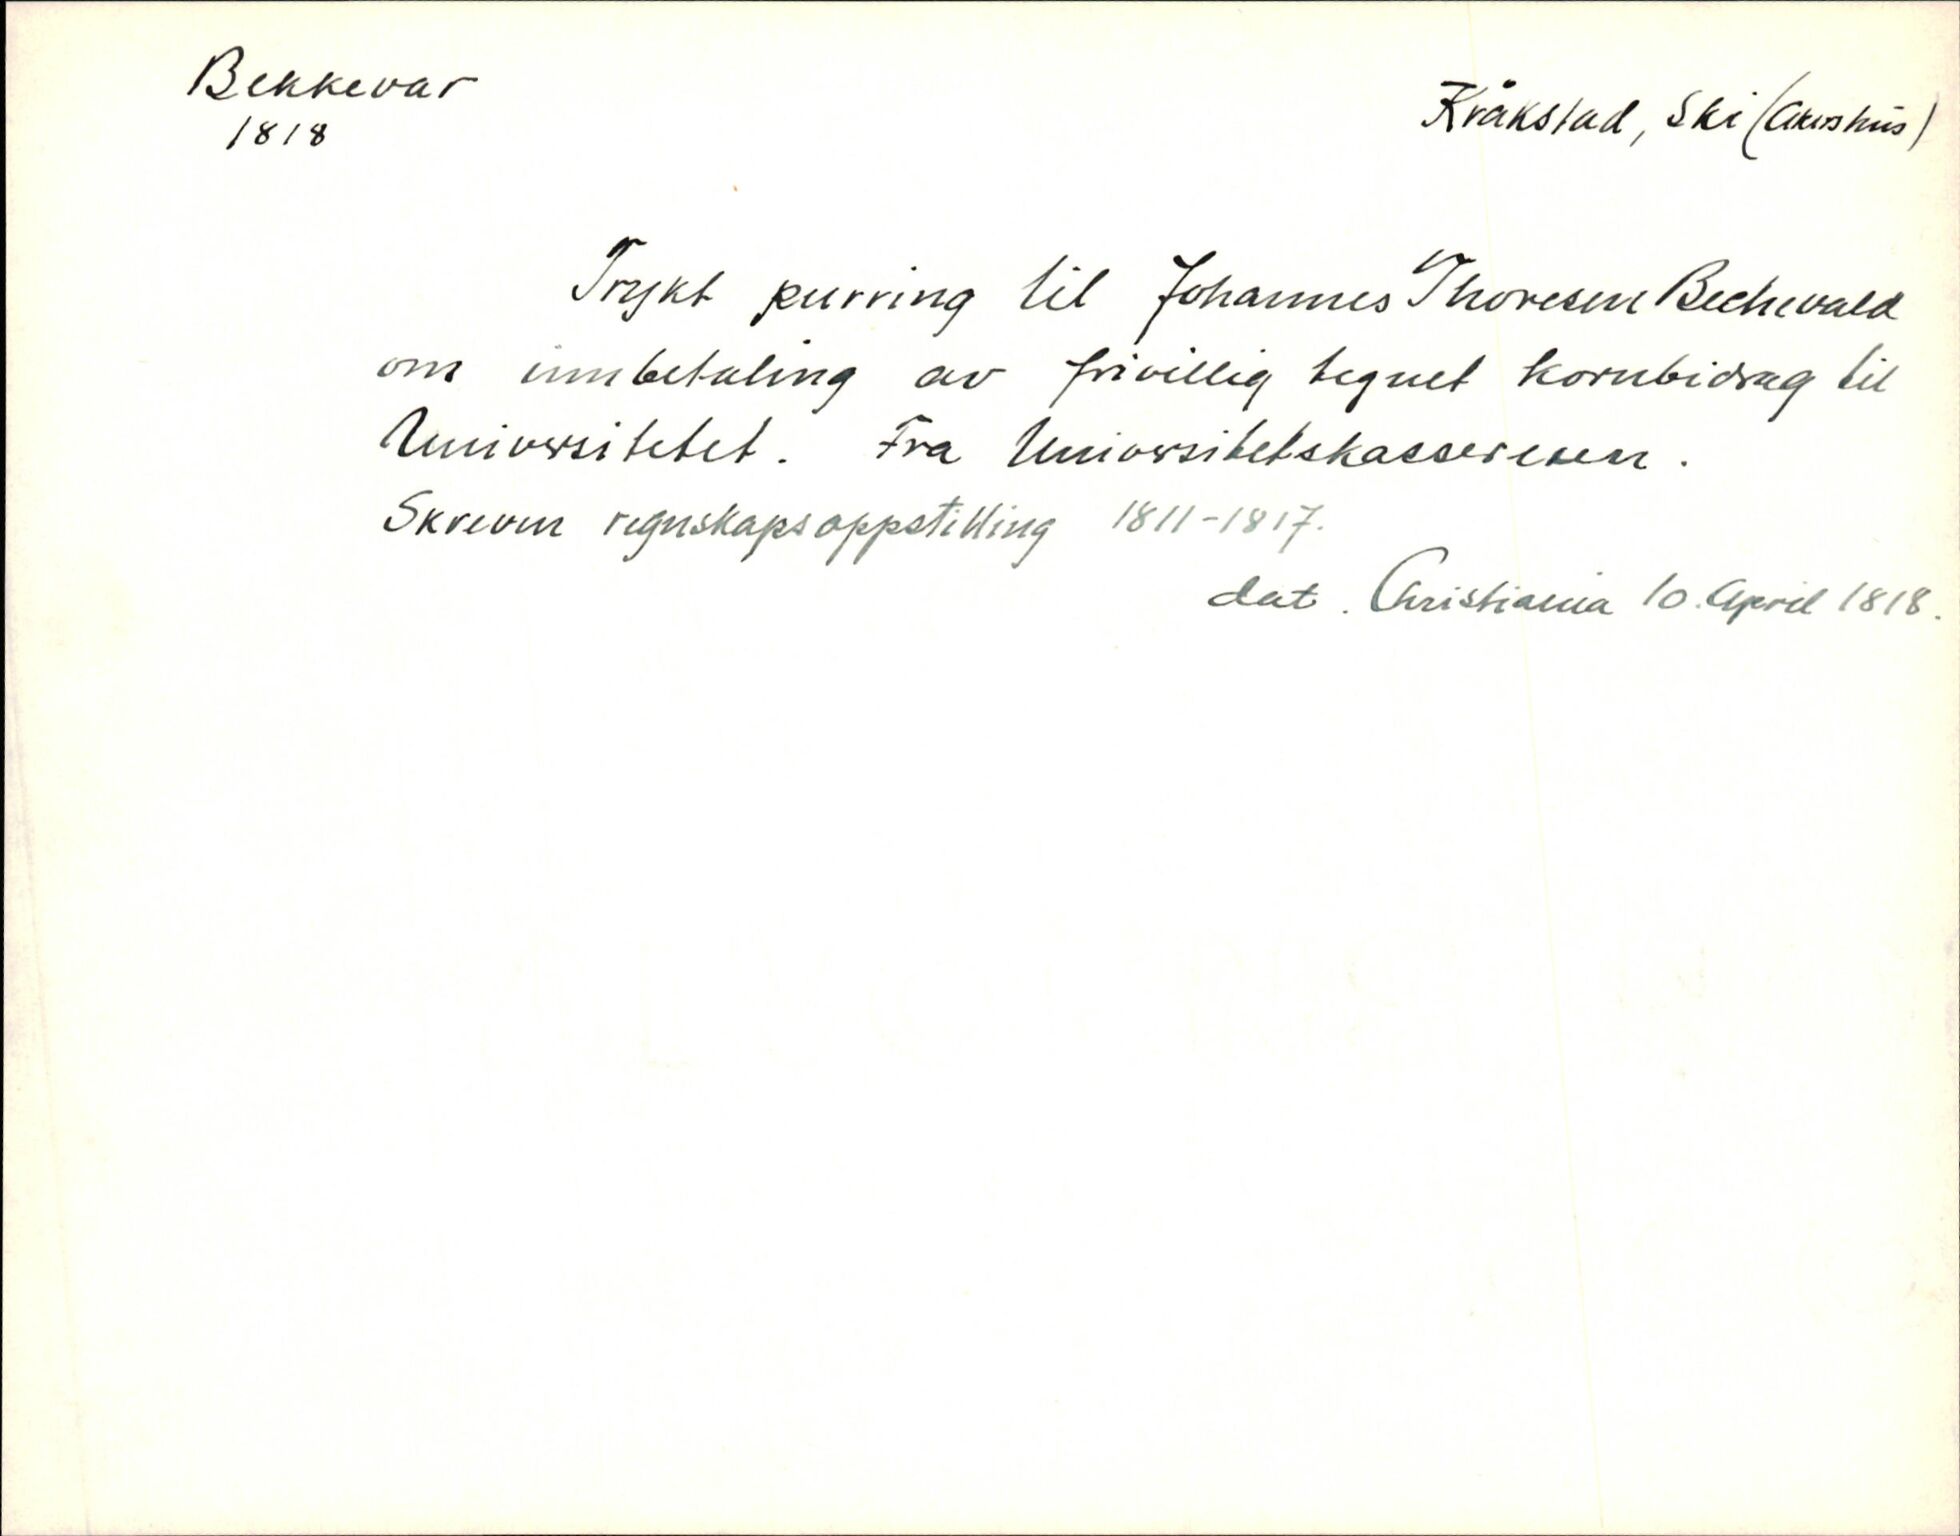 Bekkevar
1818
Kråkstad, Ski (Akershus)
Trykt purring til Johannes Thoresen Bechevald
om innbetaling av frivillig tegnet kornbidrag til
Universitetet. Fra Universitetskassereren.
Skreven regnskapsoppstilling 1811-1817.
dat. Christiania 10. April 1818.